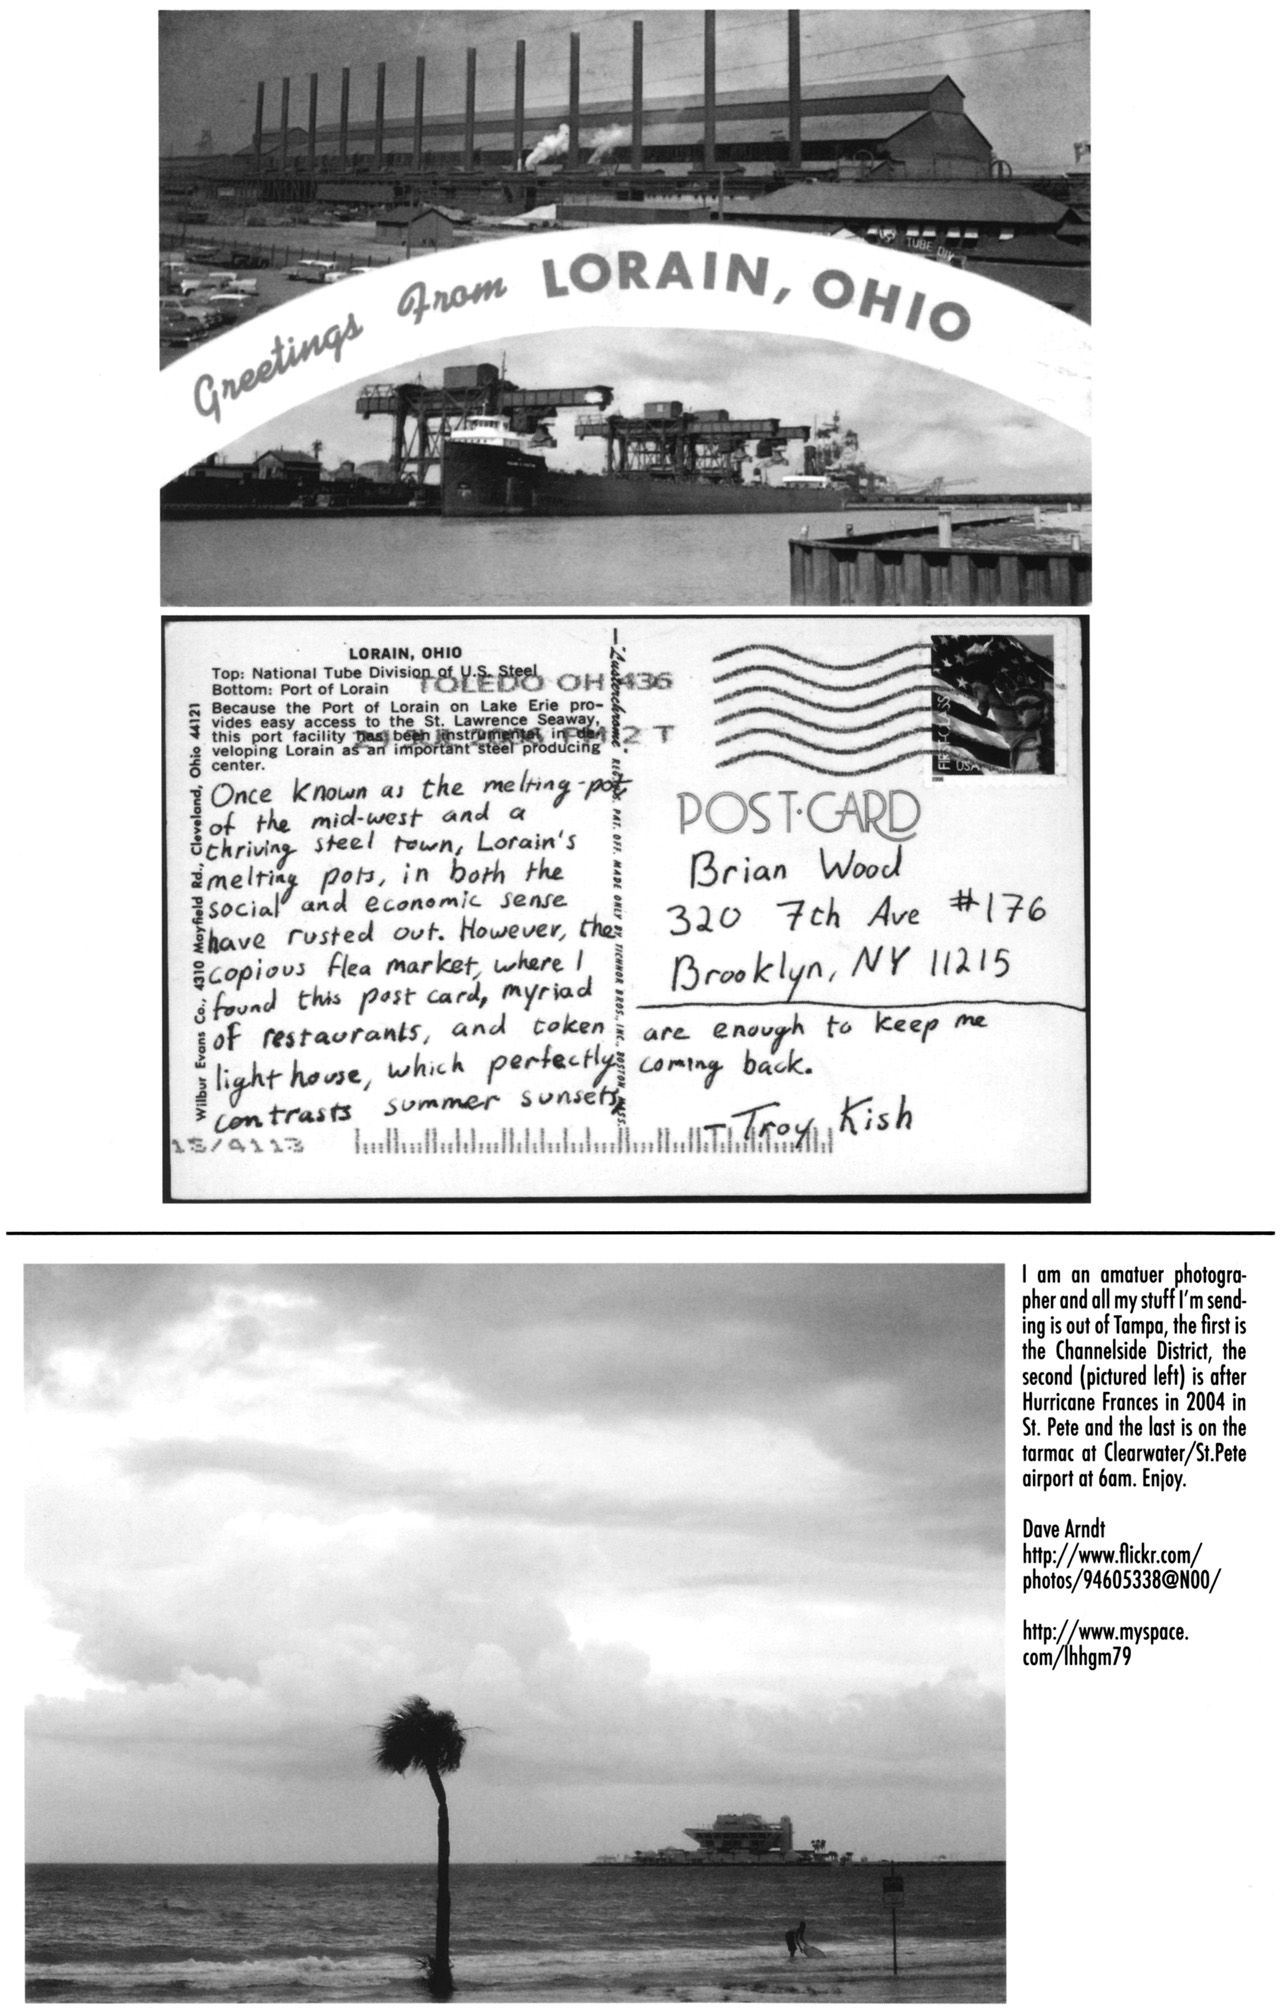 US
TUBE DIV
Greetings From LORAIN, OHIO
LORAIN, OHIO
Top: National Tube Division of U.S. Steel
Bottom: Port of Lorain
Because the Port of Lorain on Lake Erie pro-
vides easy access to the St. Lawrence Seaway,
this port facility has been instrumental in de-
veloping Lorain as an important steel producing
center.
TOLEDO OH 436
2 T
Wilbur Evans Co., 4310 Mayfield Rd., Cleveland, Ohio 44121
Once known as the melting-pot
of the mid-west and a
thriving steel town, Lorain's
melting pots, in both the
social and economic sense
have rusted out. However, the
copious flea market, where I
found this post card, myriad
of restaurants, and token
light house, which perfectly
contrasts summer sunsets,
"Lusterchrome" REG. U.S. PAT. OFF. MADE ONLY BY TICHNOR BROS., INC., BOSTON, MASS.
FIRST-CLASS
USA
2006
POST·CARD
Brian Wood
320 7th Ave #176
Brooklyn, NY 11215
are enough to keep me
coming back.
-Troy Kish
15/4113
I am an amatuer photogra-
pher and all my stuff I'm send-
ing is out of Tampa, the first is
the Channelside District, the
second (pictured left) is after
Hurricane Frances in 2004 in
St. Pete and the last is on the
tarmac at Clearwater/St.Pete
airport at 6am. Enjoy.
Dave Arndt
http://www.flickr.com/
photos/94605338@N00/
http://www.myspace.
com/lhhgm79